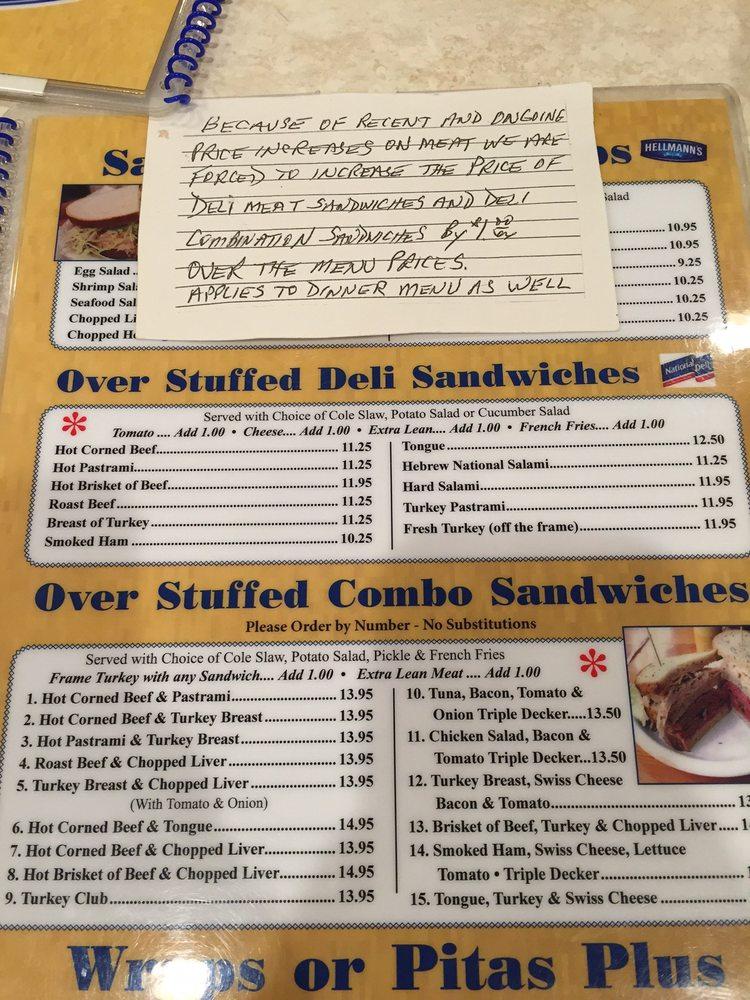 BECAUSE OF RECENT AND ONGOING
PRICE INCREASES ON MEAT WE ARE
FORCED TO INCREASE THE PRICE OF
DELI MEAT SANDWICHES AND DELI
COMBINATION SANDWICHES By $1.00
OVER THE MENU PRICES.
APPLIES TO DINNER MENU AS WELL
HELLMANN'S
Salad
10.95
10.95
9.25
10.25
10.25
10.25
Egg Salad
Shrimp
Seafood
Chopped
Chopped
Over Stuffed Deli Sandwiches
National Deli
Served with Choice of Cole Slaw, Potato Salad or Cucumber Salad
Tomato .... Add 1.00 • Cheese.... Add 1.00 • Extra Lean.... Add 1.00 • French Fries.... Add 1.00
Hot Corned Beef 11.25
Hot Pastrami 11.25
Hot Brisket of Beef 11.95
Roast Beef 11.25
Breast of Turkey 11.25
Smoked Ham 10.25
Tongue 12.50
Hebrew National Salami 11.25
Hard Salami 11.95
Turkey Pastrami 11.95
Fresh Turkey (off the frame) 11.95
Over Stuffed Combo Sandwiches
Please Order by Number - No Substitutions
Served with Choice of Cole Slaw, Potato Salad, Pickle & French Fries
Frame Turkey with any Sandwich.... Add 1.00 • Extra Lean Meat .... Add 1.00
1. Hot Corned Beef & Pastrami 13.95
2. Hot Corned Beef & Turkey Breast 13.95
3. Hot Pastrami & Turkey Breast 13.95
4. Roast Beef & Chopped Liver 13.95
5. Turkey Breast & Chopped Liver 13.95
(With Tomato & Onion)
6. Hot Corned Beef & Tongue 14.95
7. Hot Corned Beef & Chopped Liver 13.95
8. Hot Brisket of Beef & Chopped Liver 14.95
9. Turkey Club 13.95
10. Tuna, Bacon, Tomato &
Onion Triple Decker.....13.50
11. Chicken Salad, Bacon &
Tomato Triple Decker...13.50
12. Turkey Breast, Swiss Cheese
Bacon & Tomato
13. Brisket of Beef, Turkey & Chopped Liver
14. Smoked Ham, Swiss Cheese, Lettuce
Tomato • Triple Decker
15. Tongue, Turkey & Swiss Cheese
Wraps or Pitas Plus